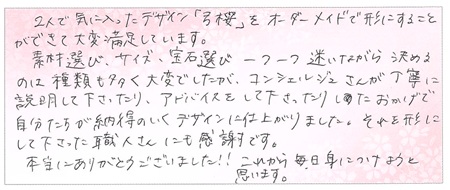 2人で気に入ったデザイン「弓桜」をオーダーメイドで形にすること
ができて大変満足しています。
素材選び、サイズ、宝石選び 一つ一つ迷いながら決める
のは種類も多く大変でしたが、コンシェルジュさんが丁寧に
説明して下さったり、アドバイスをして下さったりしたおかげで
自分たちが納得のいくデザインに仕上がりました。それを形に
して下さった職人さんにも感謝です。
本当にありがとうございました!! これから毎日身につけようと
思います。